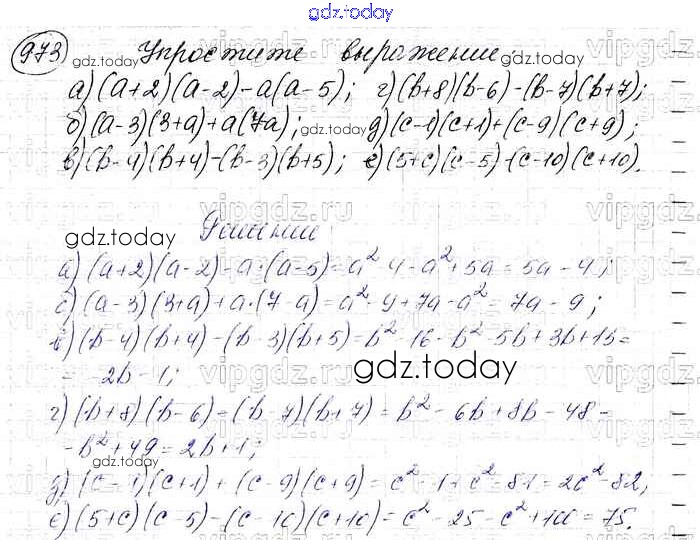 gdz.today
973 Упростите выражение:
а) (a+2)(a-2)-a(a-5); г) (b+8)(b-6)-(b-7)(b+7);
б) (a-3)(3+a)+a(7a); д) (c-1)(c+1)+(c-9)(c+9);
в) (b-4)(b+4)-(b-3)(b+5); е) (5+c)(c-5)-(c-10)(c+10).
Решение
а) (a+2)(a-2)-a·(a-5)=a²-4-a²+5a=5a-4;
б) (a-3)(3+a)+a·(7-a)=a²-9+7a-a²=7a-9;
в) (b-4)(b+4)-(b-3)(b+5)=b²-16-b²-5b+3b+15=
= -2b-1;
г) (b+8)(b-6)-(b-7)(b+7)=b²-6b+8b-48-
-b²+49=2b+1;
д) (c-1)(c+1)+(c-9)(c+9)=c²-1+c²-81=2c²-82;
е) (5+c)(c-5)-(c-10)(c+10)=c²-25-c²+100=75.